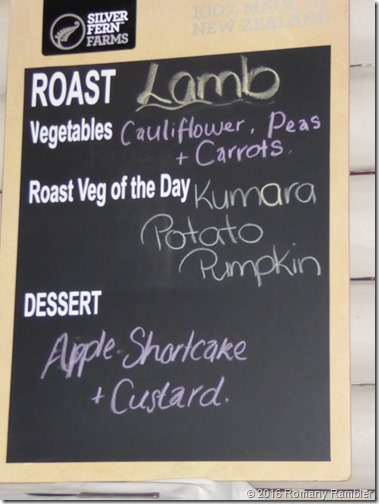 SILVER
FERN
FARMS
100% MADE OF
NEW ZEALAND
ROAST Lamb
Vegetables Cauliflower, Peas
+ Carrots.
Roast Veg of the Day Kumara
Potato
Pumpkin
DESSERT
Apple Shortcake
+ Custard.
© 2016 Romany Rambler